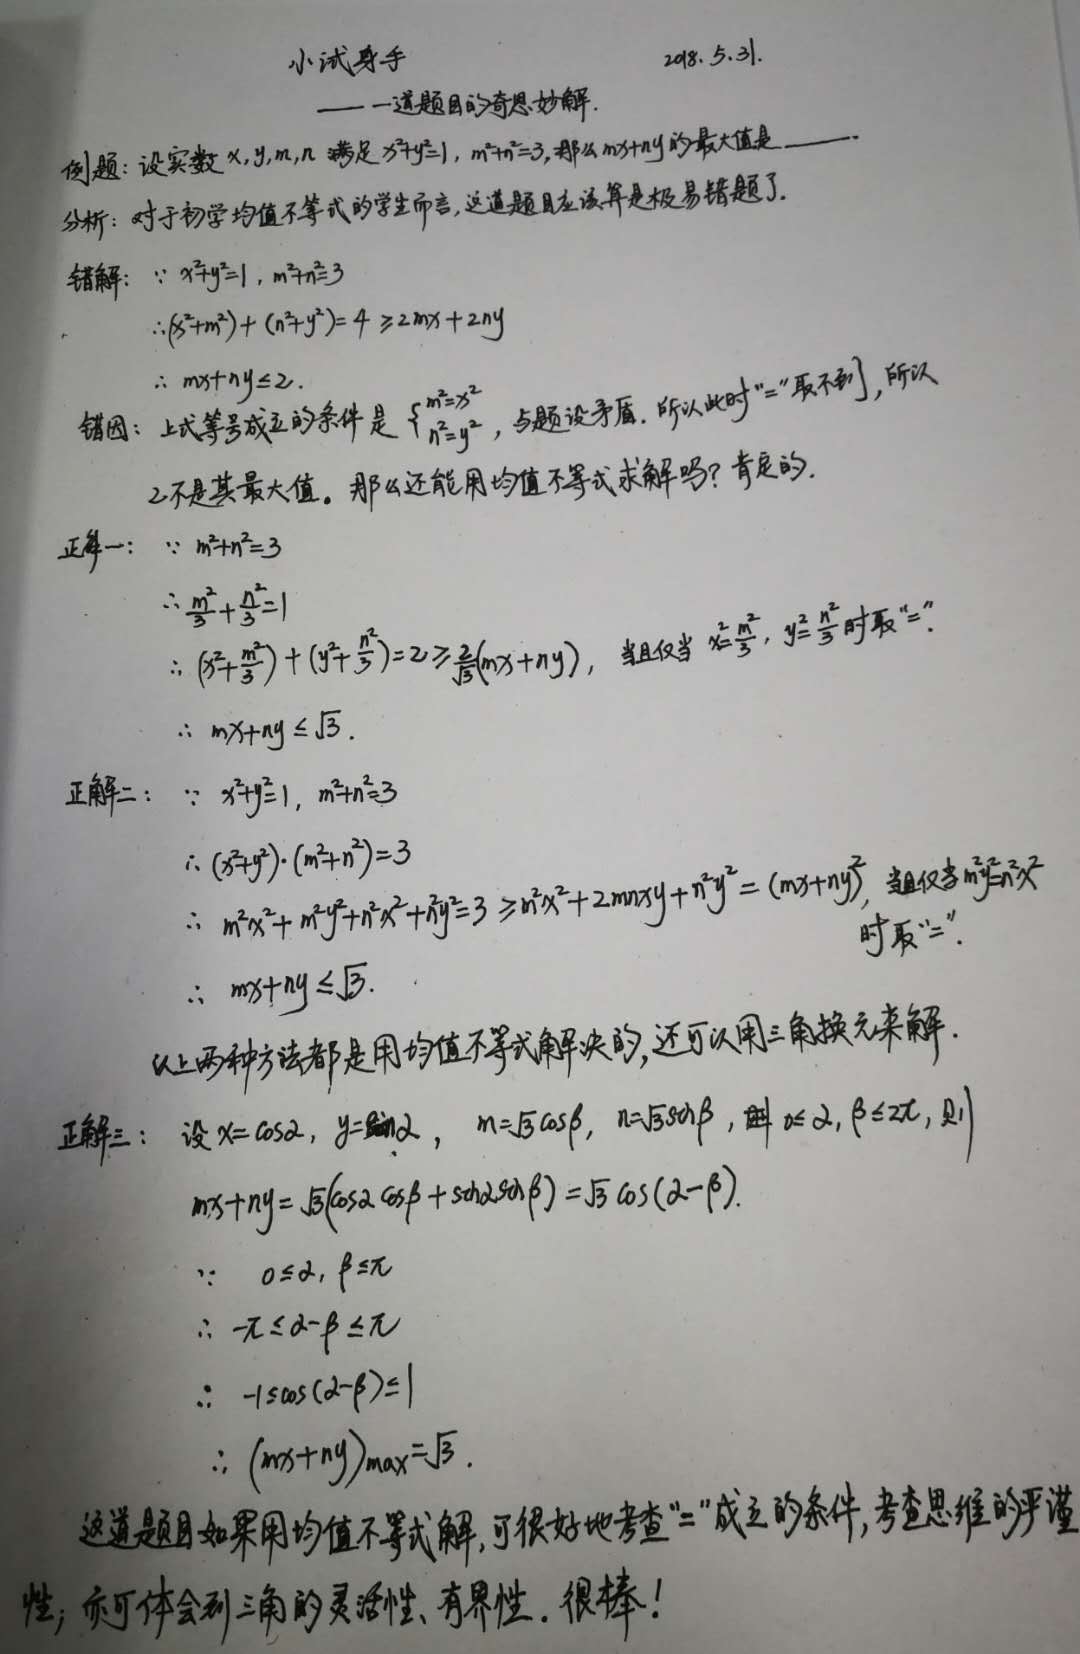 小试身手 2018.5.31.
—— 一道题目的奇思妙解.
例题：设实数x,y,m,n 满足x²+y²=1, m²+n²=3,那么mx+ny的最大值是____.
分析：对于初学均值不等式的学生而言,这道题目应该算是极易错题了.
错解：∵ x²+y²=1, m²+n²=3
∴(x²+m²)+(n²+y²)=4≥2mx+2ny
∴ mx+ny≤2.
错因：上式等号成立的条件是 {m²=x² n²=y², 与题设矛盾.所以此时"="取不到,所以
2不是其最大值。那么还能用均值不等式求解吗？肯定的.
正解一：∵ m²+n²=3
∴ m²/3+n²/3=1
∴ (x²+m²/3)+(y²+n²/3)=2≥2/√3(mx+ny), 当且仅当 x²=m²/3, y²=n²/3时取"=".
∴ mx+ny≤√3.
正解二：∵ x²+y²=1, m²+n²=3
∴ (x²+y²)·(m²+n²)=3
∴ m²x²+m²y²+n²x²+n²y²=3≥m²x²+2mnxy+n²y²=(mx+ny)², 当且仅当m²y²=n²x²
时取"=".
∴ mx+ny≤√3.
以上两种方法都是用均值不等式解决的,还可以用三角换元来解.
正解三：设x=cosα, y=sinα, m=√3cosβ, n=√3sinβ, 0≤α,β≤2π,则
mx+ny=√3(cosαcosβ+sinαsinβ)=√3cos(α-β).
∵ 0≤α,β≤π
∴ -π≤α-β≤π
∴ -1≤cos(α-β)≤1
∴ (mx+ny)max=√3.
这道题目如果用均值不等式解,可很好地考查"="成立的条件,考查思维的严谨
性；亦可体会到三角的灵活性、有界性.很棒！